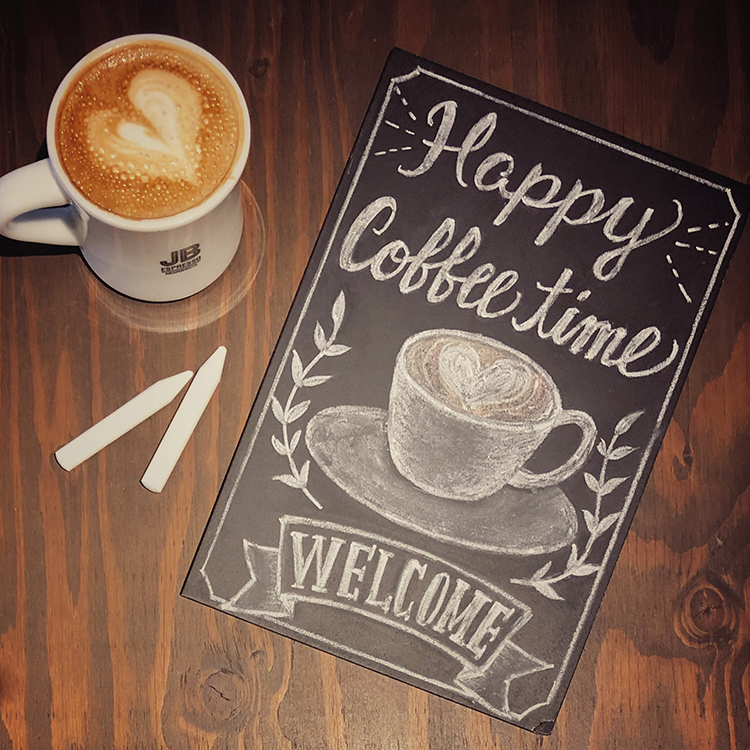 JB
ESPRESSO
Happy
Coffee time
WELCOME